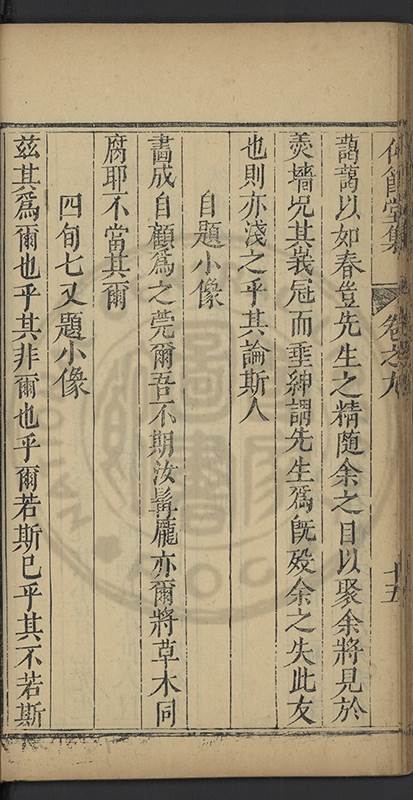 仰節堂集 卷之九 十五
藹藹以如春豈先生之精隨余之目以聚余將見於
羮墻況其峩冠而垂紳謂先生爲旣殁余之失此友
也則亦淺之乎其論斯人
自題小像
畵成自顧爲之莞爾吾不期汝髯龐亦爾將草木同
腐耶不當其爾
四旬七又題小像
兹其爲爾也乎其非爾也乎爾若斯已乎其不若斯